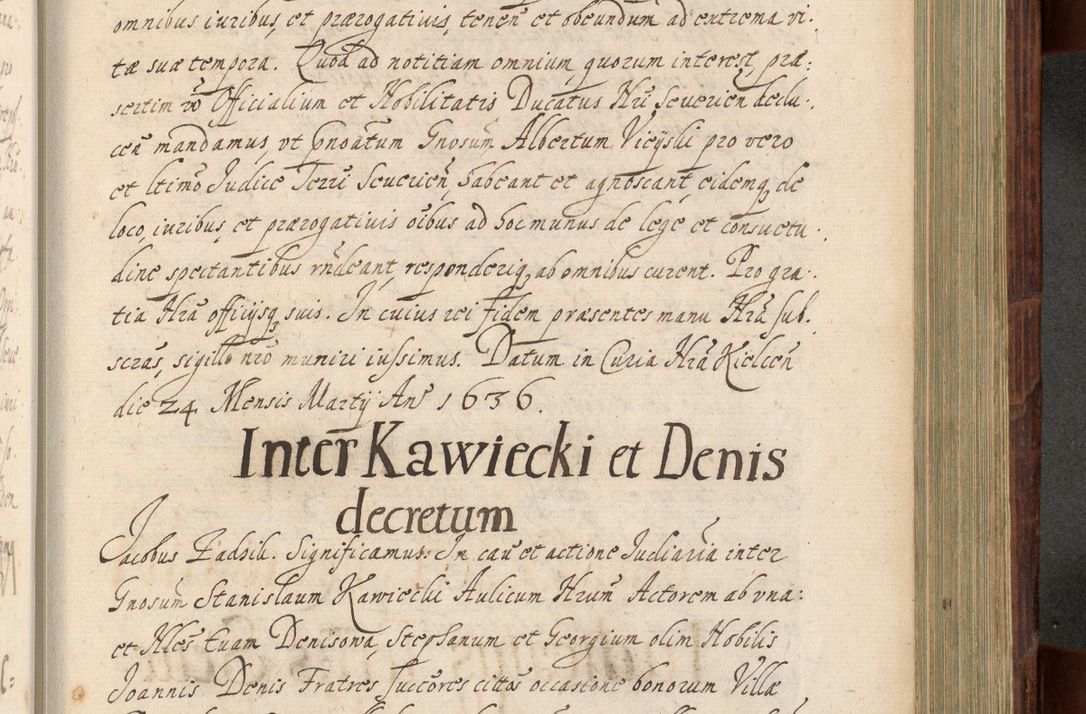 omnibus iuribus, et prærogativis, tenen̄ et obeundum ad extrema vi:
tæ suæ tempora. Quod ad notitiam omnium quorum interest, præ:
sertim v̄o Officialium et Nobilitatis Ducatus Nr̄i Severien̄ dedu:
cen̄ mandamus, vt p̄noatum Gnosum Albertum Vicÿski pro vero
et ltimo Iudice Terrī Severien̄, habeant et agnoscant, eidemq₃ de
loco, iuribus, et prærogativis oībus ad hoc munus de lege et consuetu:
dine spectantibus rn̄deant, responderiq₃ ab omnibus curent. Pro gra:
tia Nrā officÿsq₃ suis. In cuius rei fidem præsentes manu Nrā sub.
scras, sigillo nrō muniri iussimus. Datum in Curia Nrā Kielcen̄
die 24 Mensis Martÿ An̄ 1636.
Inter Kawiecki et Denis
decretum
Jacobus Zadbik. Significamus. In cau et actione Judiaria inter
Gnosum̄ Stanislaum Kawiecki Aulicum Nrum̄ Actorem ab vna:
et Nlles Evam Denisowa, Stephanum et Georgium olim Nobilis
Joannis Denis Fratres Succōres cittos occasione bonorum Villæ